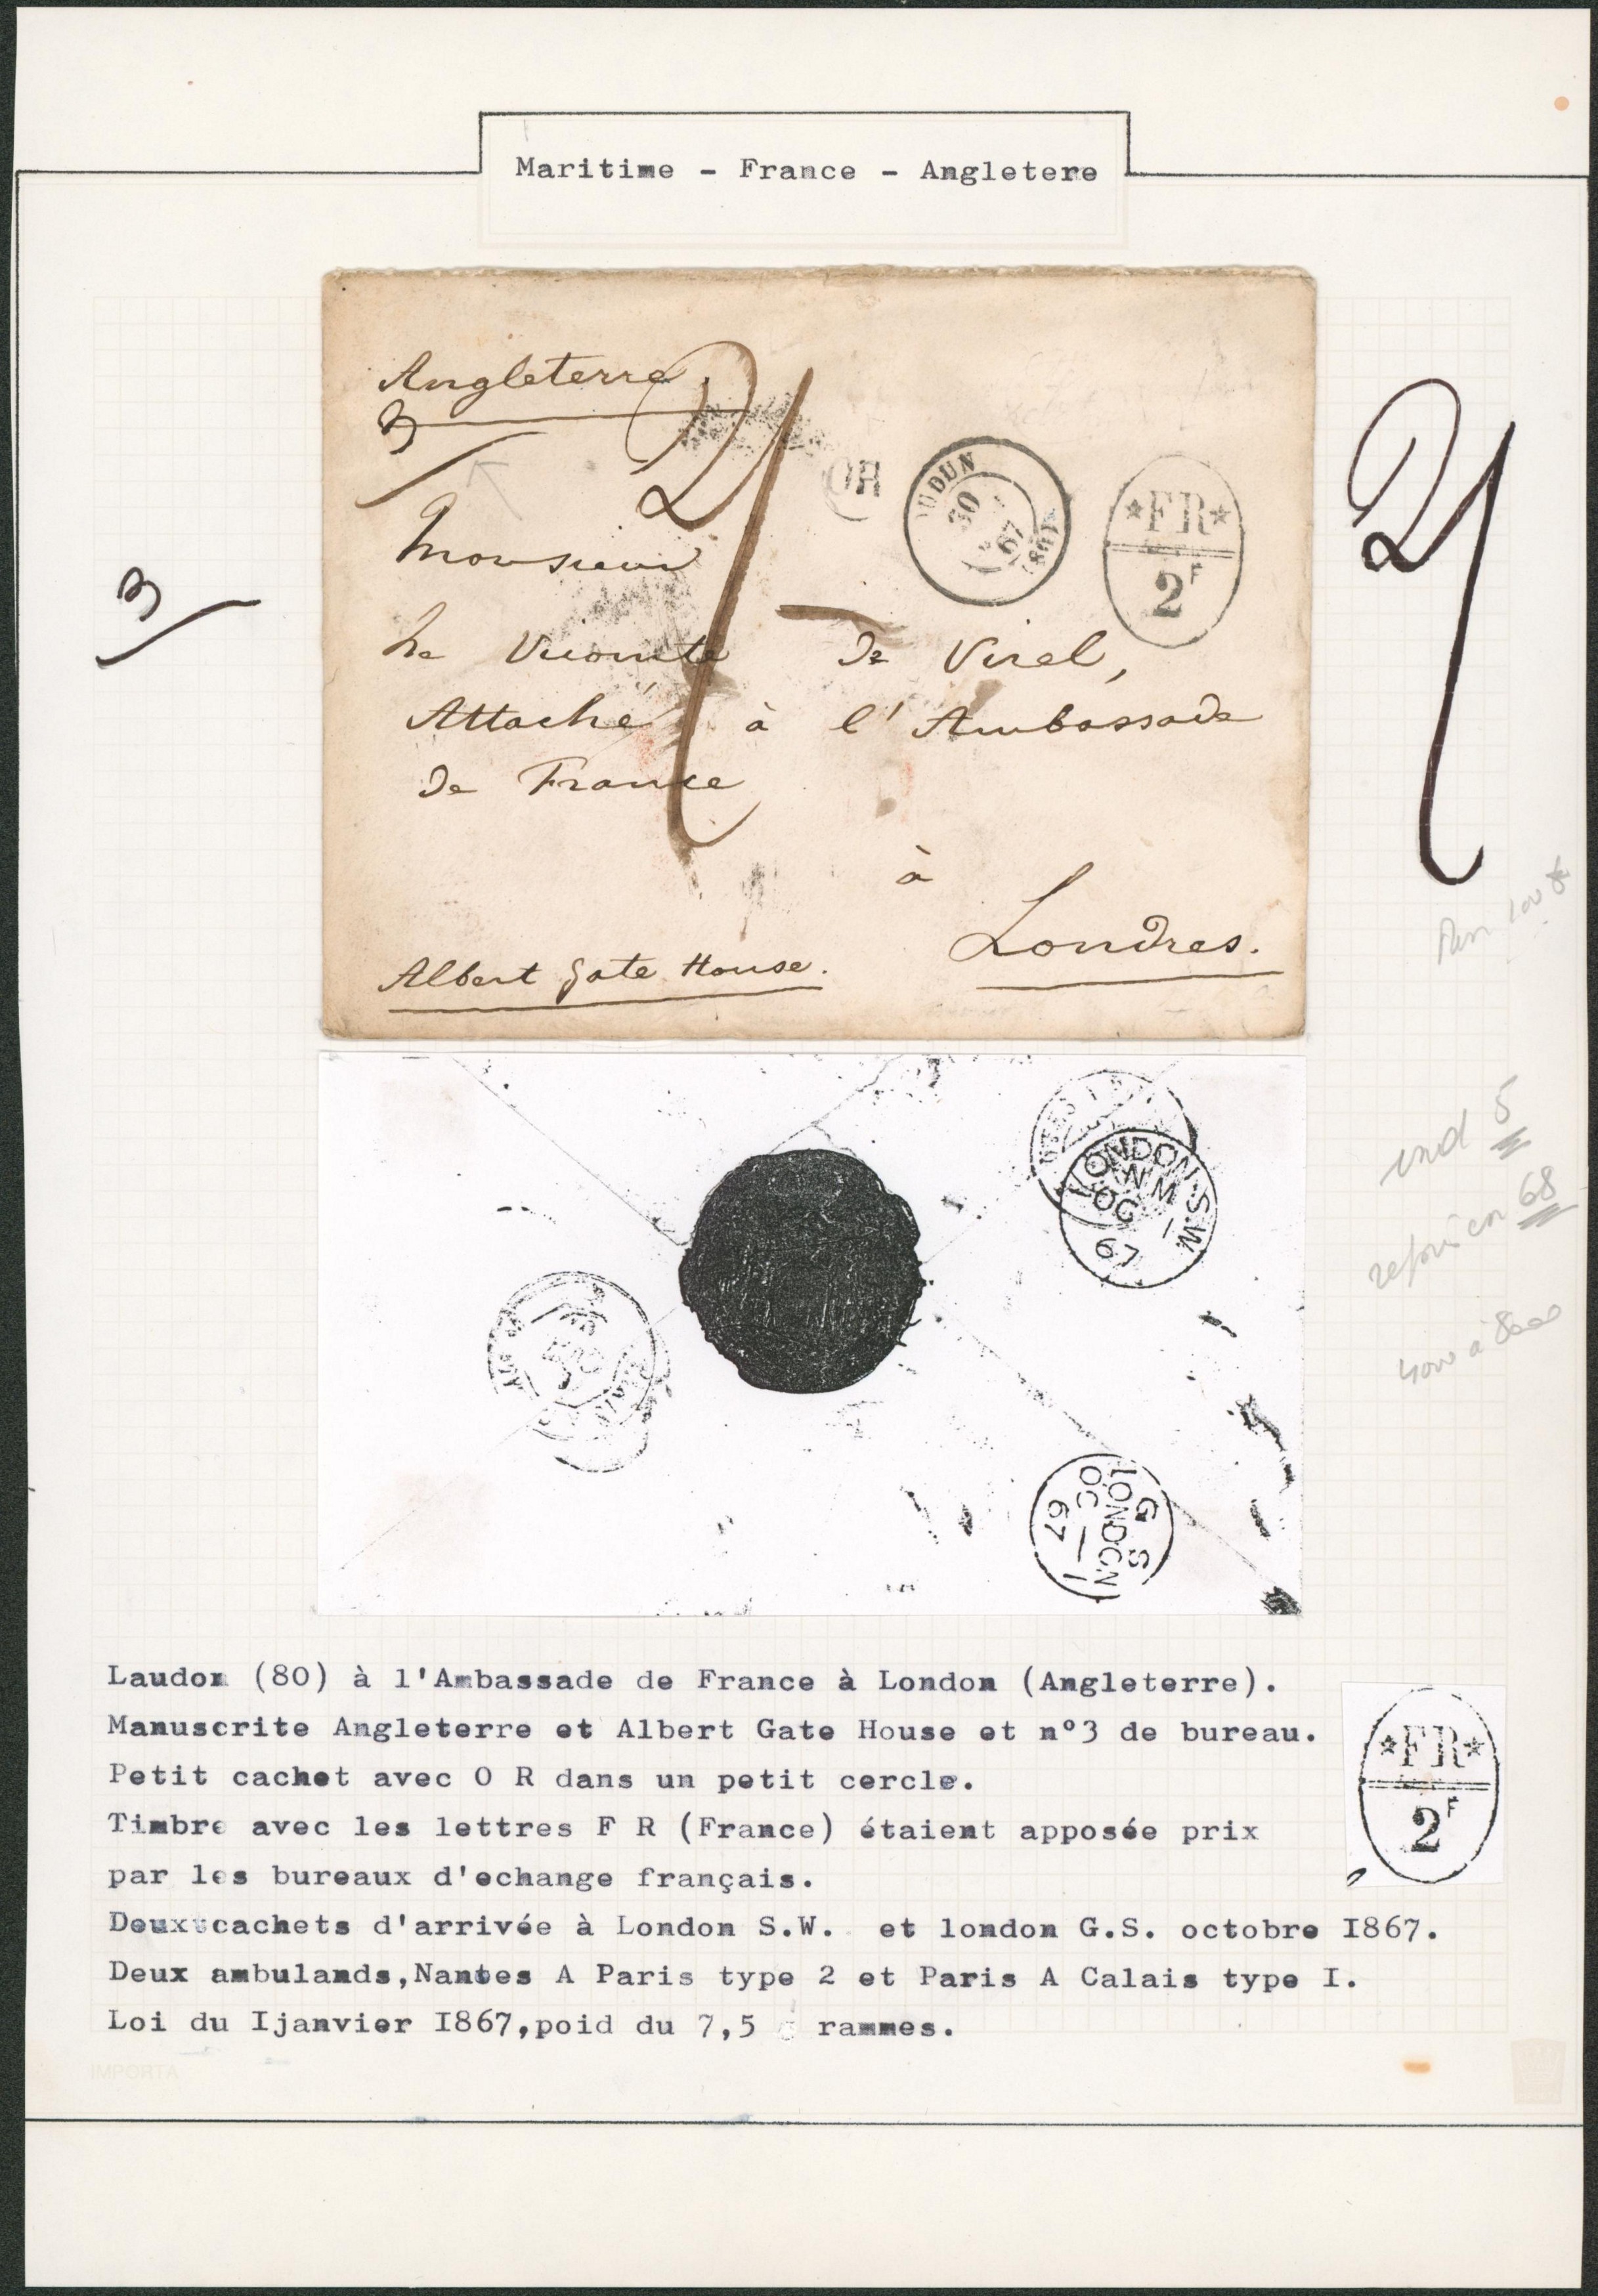 Maritime - France - Angletere
Angleterre.
3
2/
OR
UDUN
30
67
(86)
★FR★
2F
Monsieur
Le Vicomte de Virel,
Attaché à l'Ambassade
de France
à
Londres.
Albert Gate House.
3
2/
LONDON.S.W.
WM
OC 1
67
G S
LONDON
OC 1
67
ind 5
68
Laudon (80) à l'Ambassade de France à London (Angleterre).
Manuscrite Angleterre et Albert Gate House et n°3 de bureau.
Petit cachet avec O R dans un petit cercle.
Timbre avec les lettres F R (France) étaient apposée prix
par les bureaux d'echange français.
Deux cachets d'arrivée à London S.W. et london G.S. octobre I867.
Deux ambulands,Nantes A Paris type 2 et Paris A Calais type I.
Loi du Ijanvier I867,poid du 7,5 g rammes.
★FR★
2F
IMPORTA